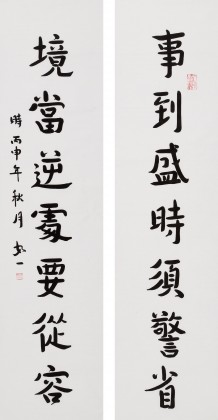 事到盛時須警省
境當逆處要從容
時丙申年秋月